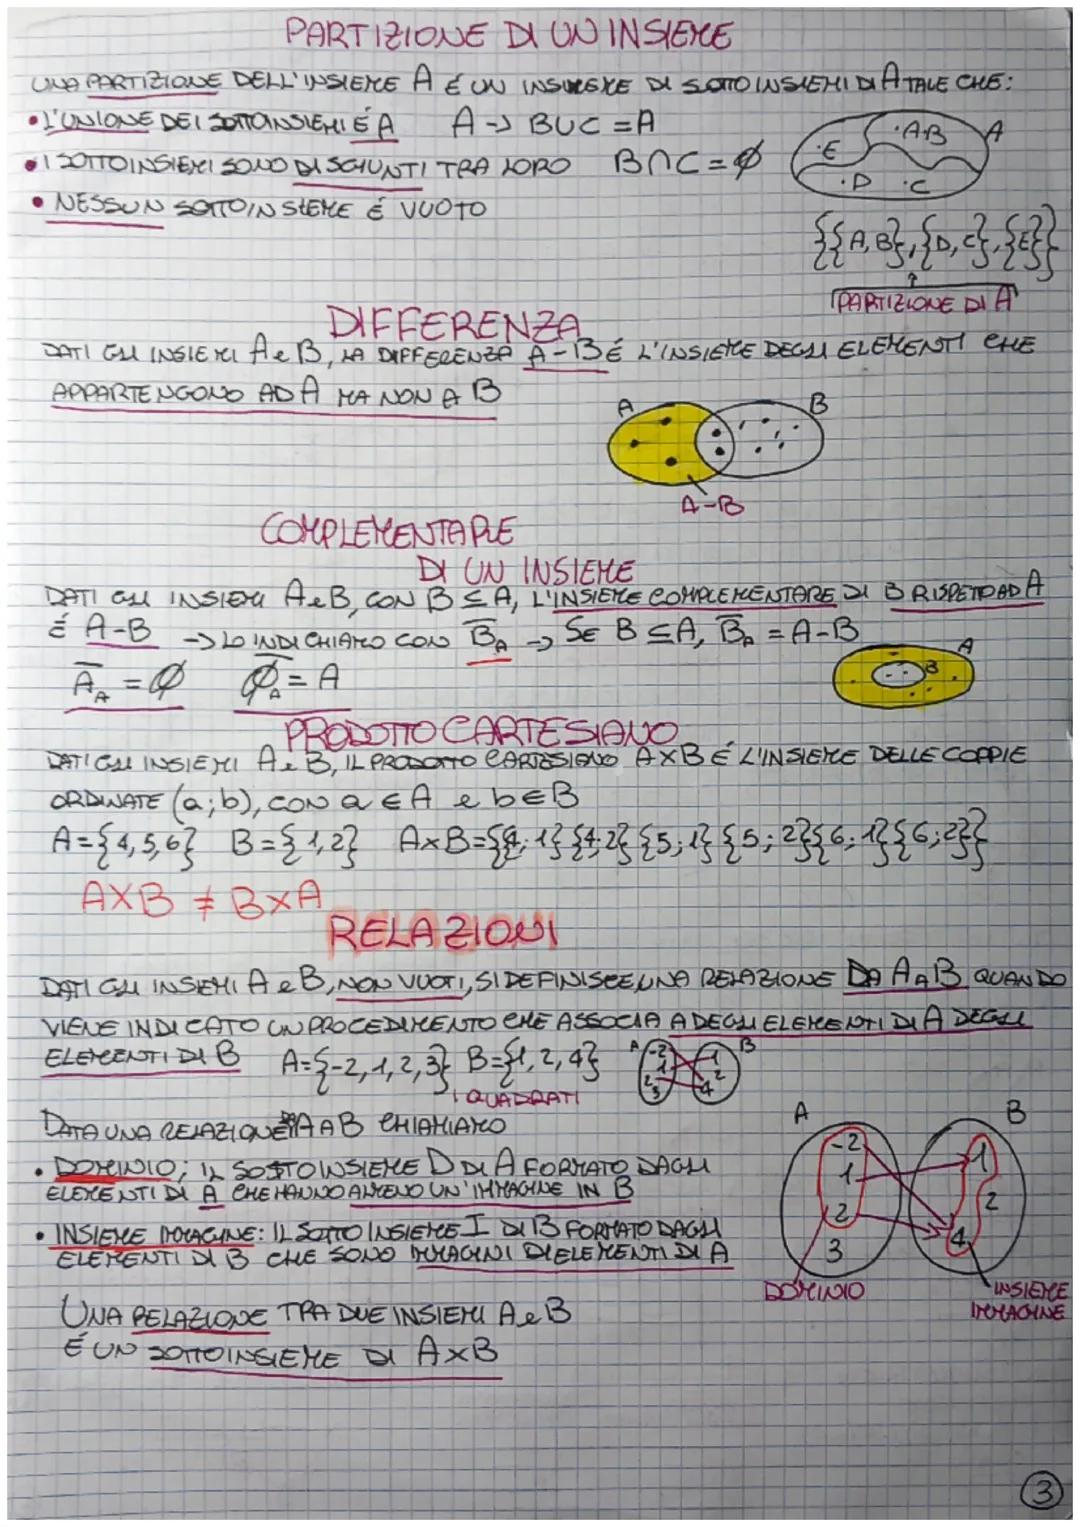 PARTIZIONE DI UN INSIEME
UNA PARTIZIONE DELL'INSIEME A É UN INSIEME DI SOTTOINSIEMI DI A TALE CHE:
• L'UNIONE DEI SOTTOINSIEMI É A A → B∪C = A
• I SOTTOINSIEMI SONO DISGIUNTI TRA LORO B∩C = ∅
• NESSUN SOTTOINSIEME É VUOTO
•E •A•B A
•D •C
{{A,B},{D,C},{E}}
PARTIZIONE DI A
DIFFERENZA
DATI GLI INSIEMI A e B, LA DIFFERENZA A-B É L'INSIEME DEGLI ELEMENTI CHE
APPARTENGONO AD A MA NON A B
A B
A-B
COMPLEMENTARE
DI UN INSIEME
DATI GLI INSIEMI A e B, CON B ⊆ A, L'INSIEME COMPLEMENTARE DI B RISPETTO AD A
É A-B → LO INDICHIAMO CON B̅_A → SE B ⊆ A, B̅_A = A-B
A̅_A = ∅ ∅̅_A = A
A
B
PRODOTTO CARTESIANO
DATI GLI INSIEMI A e B, IL PRODOTTO CARTESIANO A×B É L'INSIEME DELLE COPPIE
ORDINATE (a;b), CON a ∈ A e b ∈ B
A={4,5,6} B={1,2} A×B={{4;1}{4;2}{5;1}{5;2}{6;1}{6;2}}
A×B ≠ B×A
RELAZIONI
DATI GLI INSIEMI A e B, NON VUOTI, SI DEFINISCE UNA RELAZIONE DA A A B QUANDO
VIENE INDICATO UN PROCEDIMENTO CHE ASSOCIA A DEGLI ELEMENTI DI A DEGLI
ELEMENTI DI B A={-2,1,2,3} B={1,2,4}
I QUADRATI
A B
-2 1
1 2
2 4
3
DATA UNA RELAZIONE DA A A B CHIAMIAMO
• DOMINIO; IL SOTTOINSIEME D DI A FORMATO DAGLI
ELEMENTI DI A CHE HANNO ALMENO UN'IMMAGINE IN B
• INSIEME IMMAGINE: IL SOTTOINSIEME I DI B FORMATO DAGLI
ELEMENTI DI B CHE SONO IMMAGINI DI ELEMENTI DI A
A B
-2 1
1 2
2 4
3
DOMINIO
INSIEME
IMMAGINE
UNA RELAZIONE TRA DUE INSIEMI A e B
É UN SOTTOINSIEME DI A×B
3